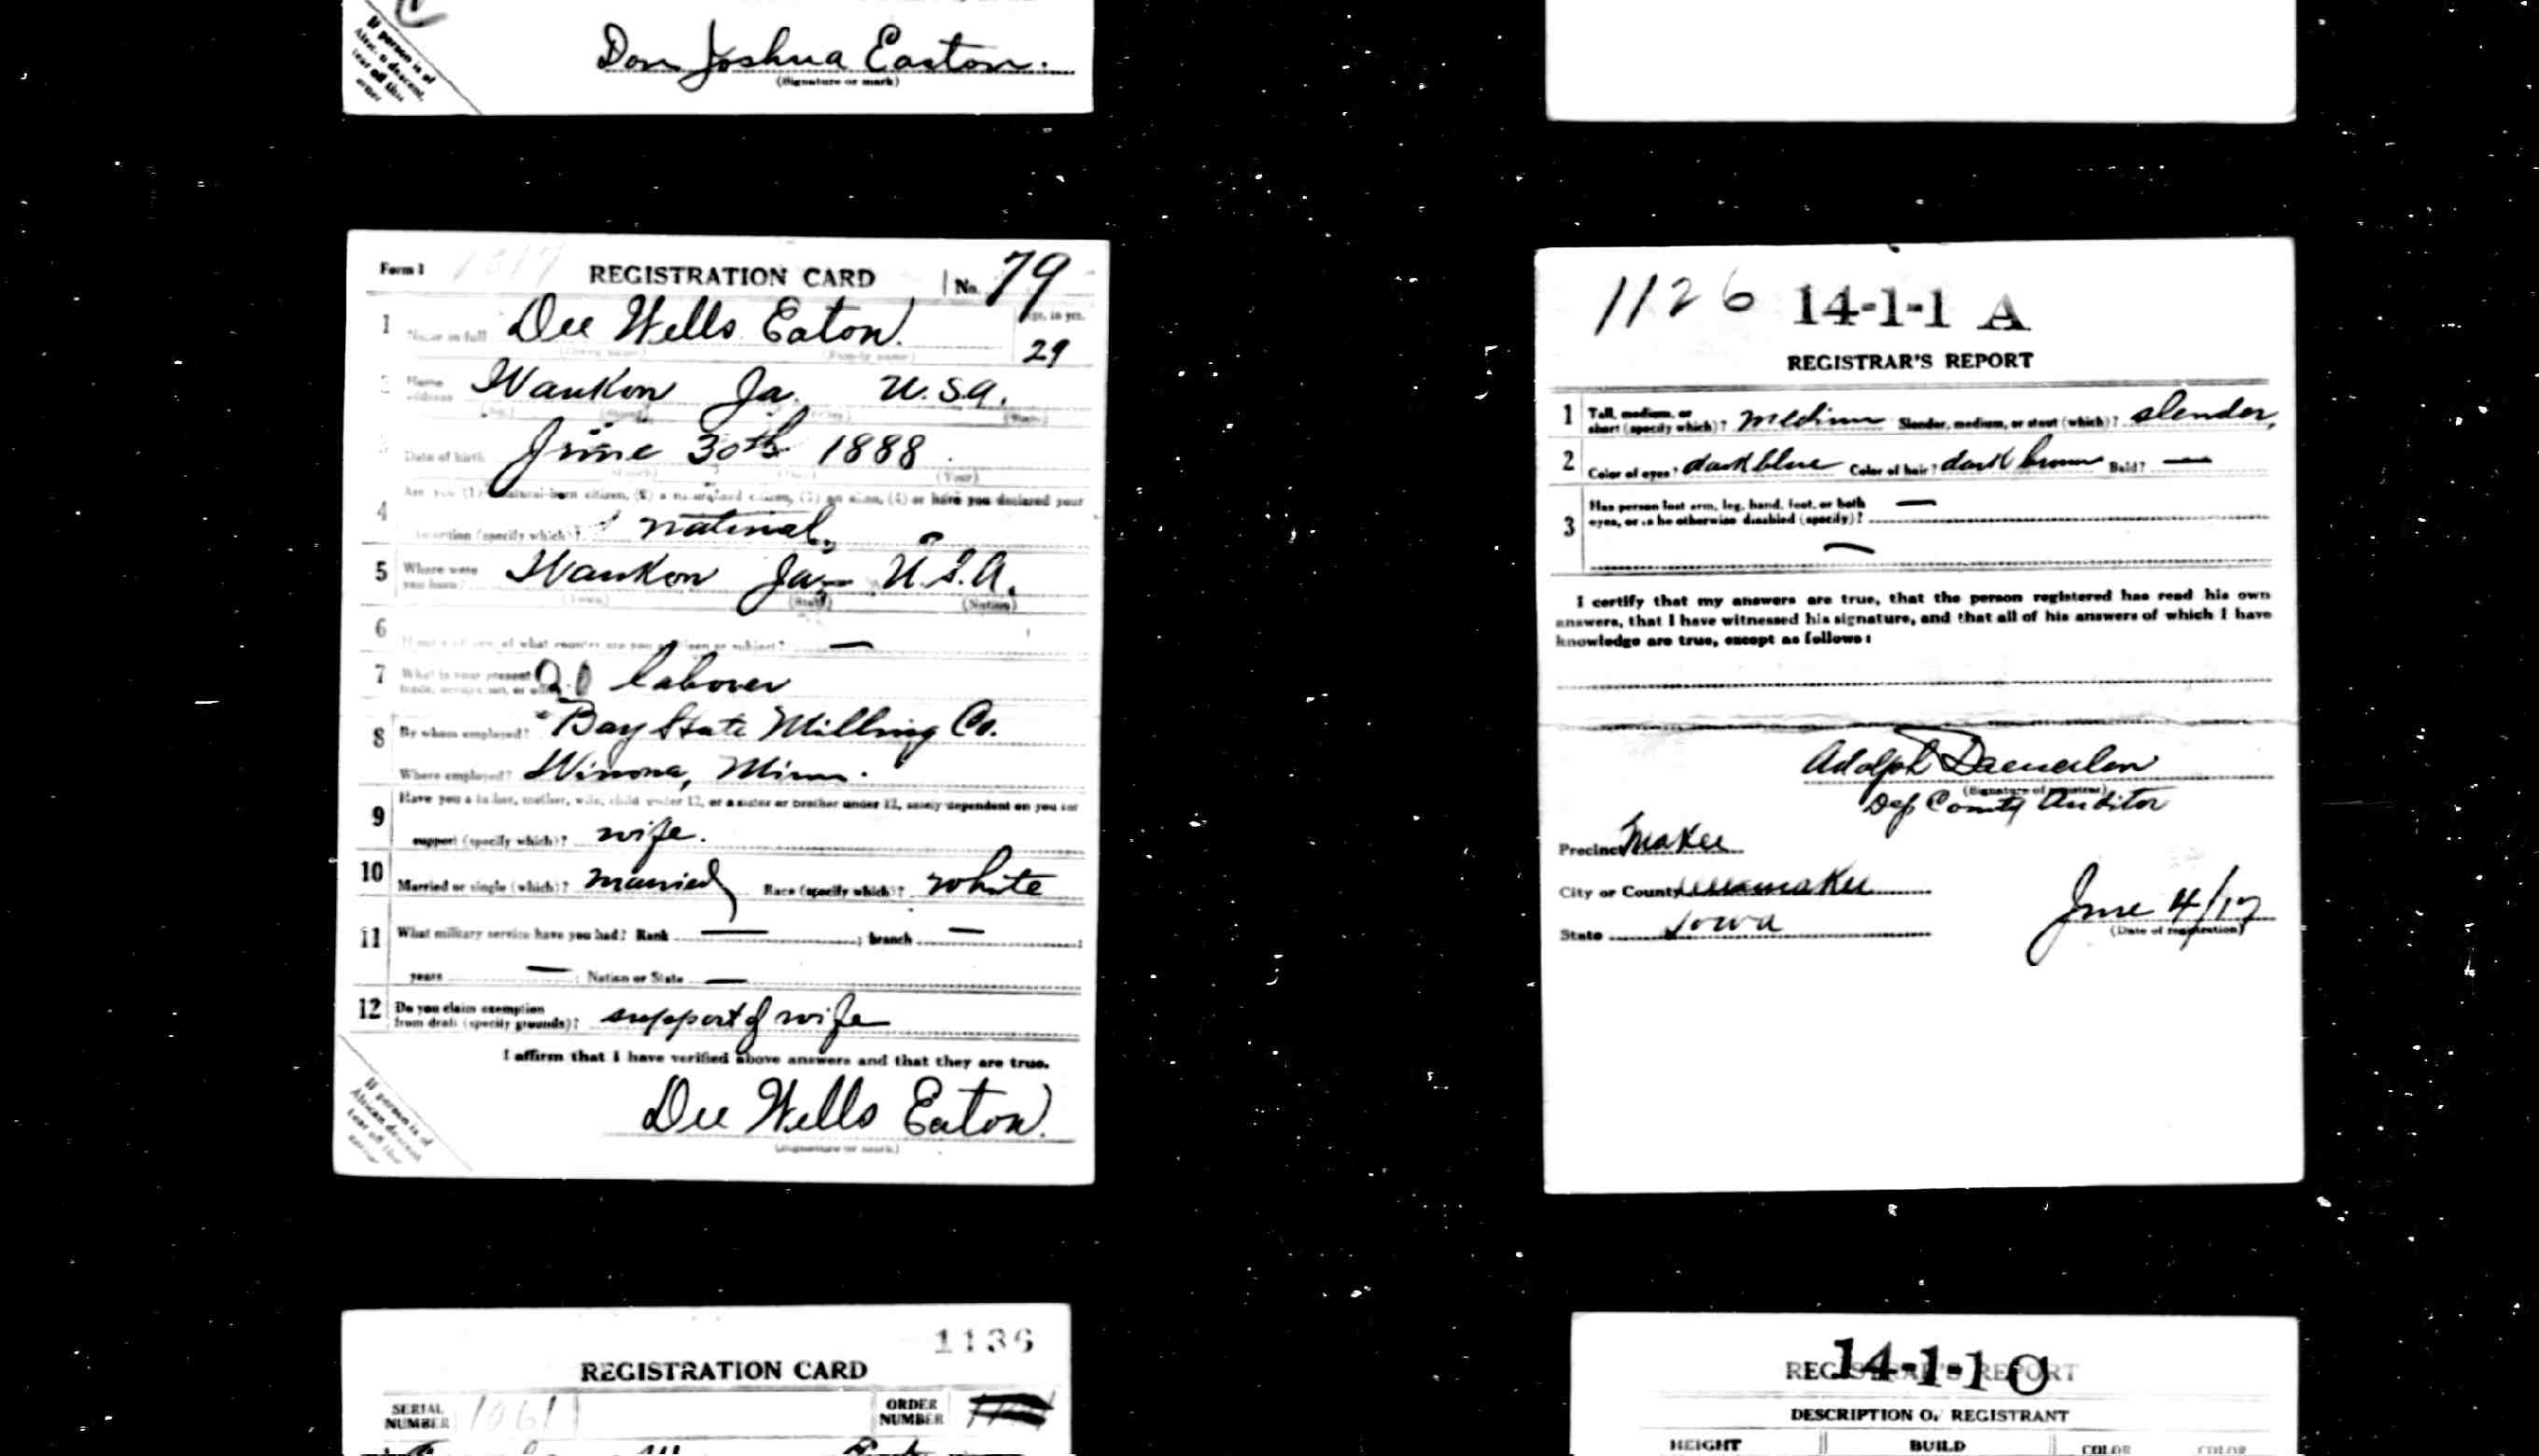 If person is of
African descent,
tear off this
corner
Don Joshua Easton.
(Signature or mark)
Form 1 REGISTRATION CARD No. 79
1 Name in full Dee Wells Eaton. Age, in yrs.
(Given name) (Family name) 29
2 Home address Waukon Ia. U.S.A.
(No.) (Street) (City) (State)
3 Date of birth June 30th 1888
(Month) (Day) (Year)
4 Are you (1) a natural-born citizen, (2) a naturalized citizen, (3) an alien, (4) or have you declared your
intention (specify which)? natural,
5 Where were you born? Waukon Ia. U.S.A.
(Town) (State) (Nation)
6 If not a citizen, of what country are you a citizen or subject? —
7 What is your present trade, occupation, or office? laborer
8 By whom employed? Bay State Milling Co.
Where employed? Winona, Minn.
9 Have you a father, mother, wife, child under 12, or a sister or brother under 12, solely dependent on you for
support (specify which)? wife.
10 Married or single (which)? married Race (specify which)? white
11 What military service have you had? Rank — ; branch — ;
years — ; Nation or State —
12 Do you claim exemption from draft (specify grounds)? support of wife
I affirm that I have verified above answers and that they are true.
Dee Wells Eaton.
(Signature or mark)
If person is of
African descent
tear off this
corner
1126 14-1-1 A
REGISTRAR'S REPORT
1 Tall, medium, or short (specify which)? medium Slender, medium, or stout (which)? slender,
2 Color of eyes? dark blue Color of hair? dark brown Bald? —
3 Has person lost arm, leg, hand, foot, or both
eyes, or is he otherwise disabled (specify)? —
—
I certify that my answers are true, that the person registered has read his own
answers, that I have witnessed his signature, and that all of his answers of which I have
knowledge are true, except as follows:
Adolph
(Signature of registrar)
Dep County Auditor
Precinct Makee
City or County Allamakee
State Iowa
June 4/17
(Date of registration)
1136
REGISTRATION CARD
SERIAL NUMBER 1061 ORDER NUMBER
14-1-1 C
REGISTRAR'S REPORT
DESCRIPTION OF REGISTRANT
HEIGHT BUILD COLOR COLOR